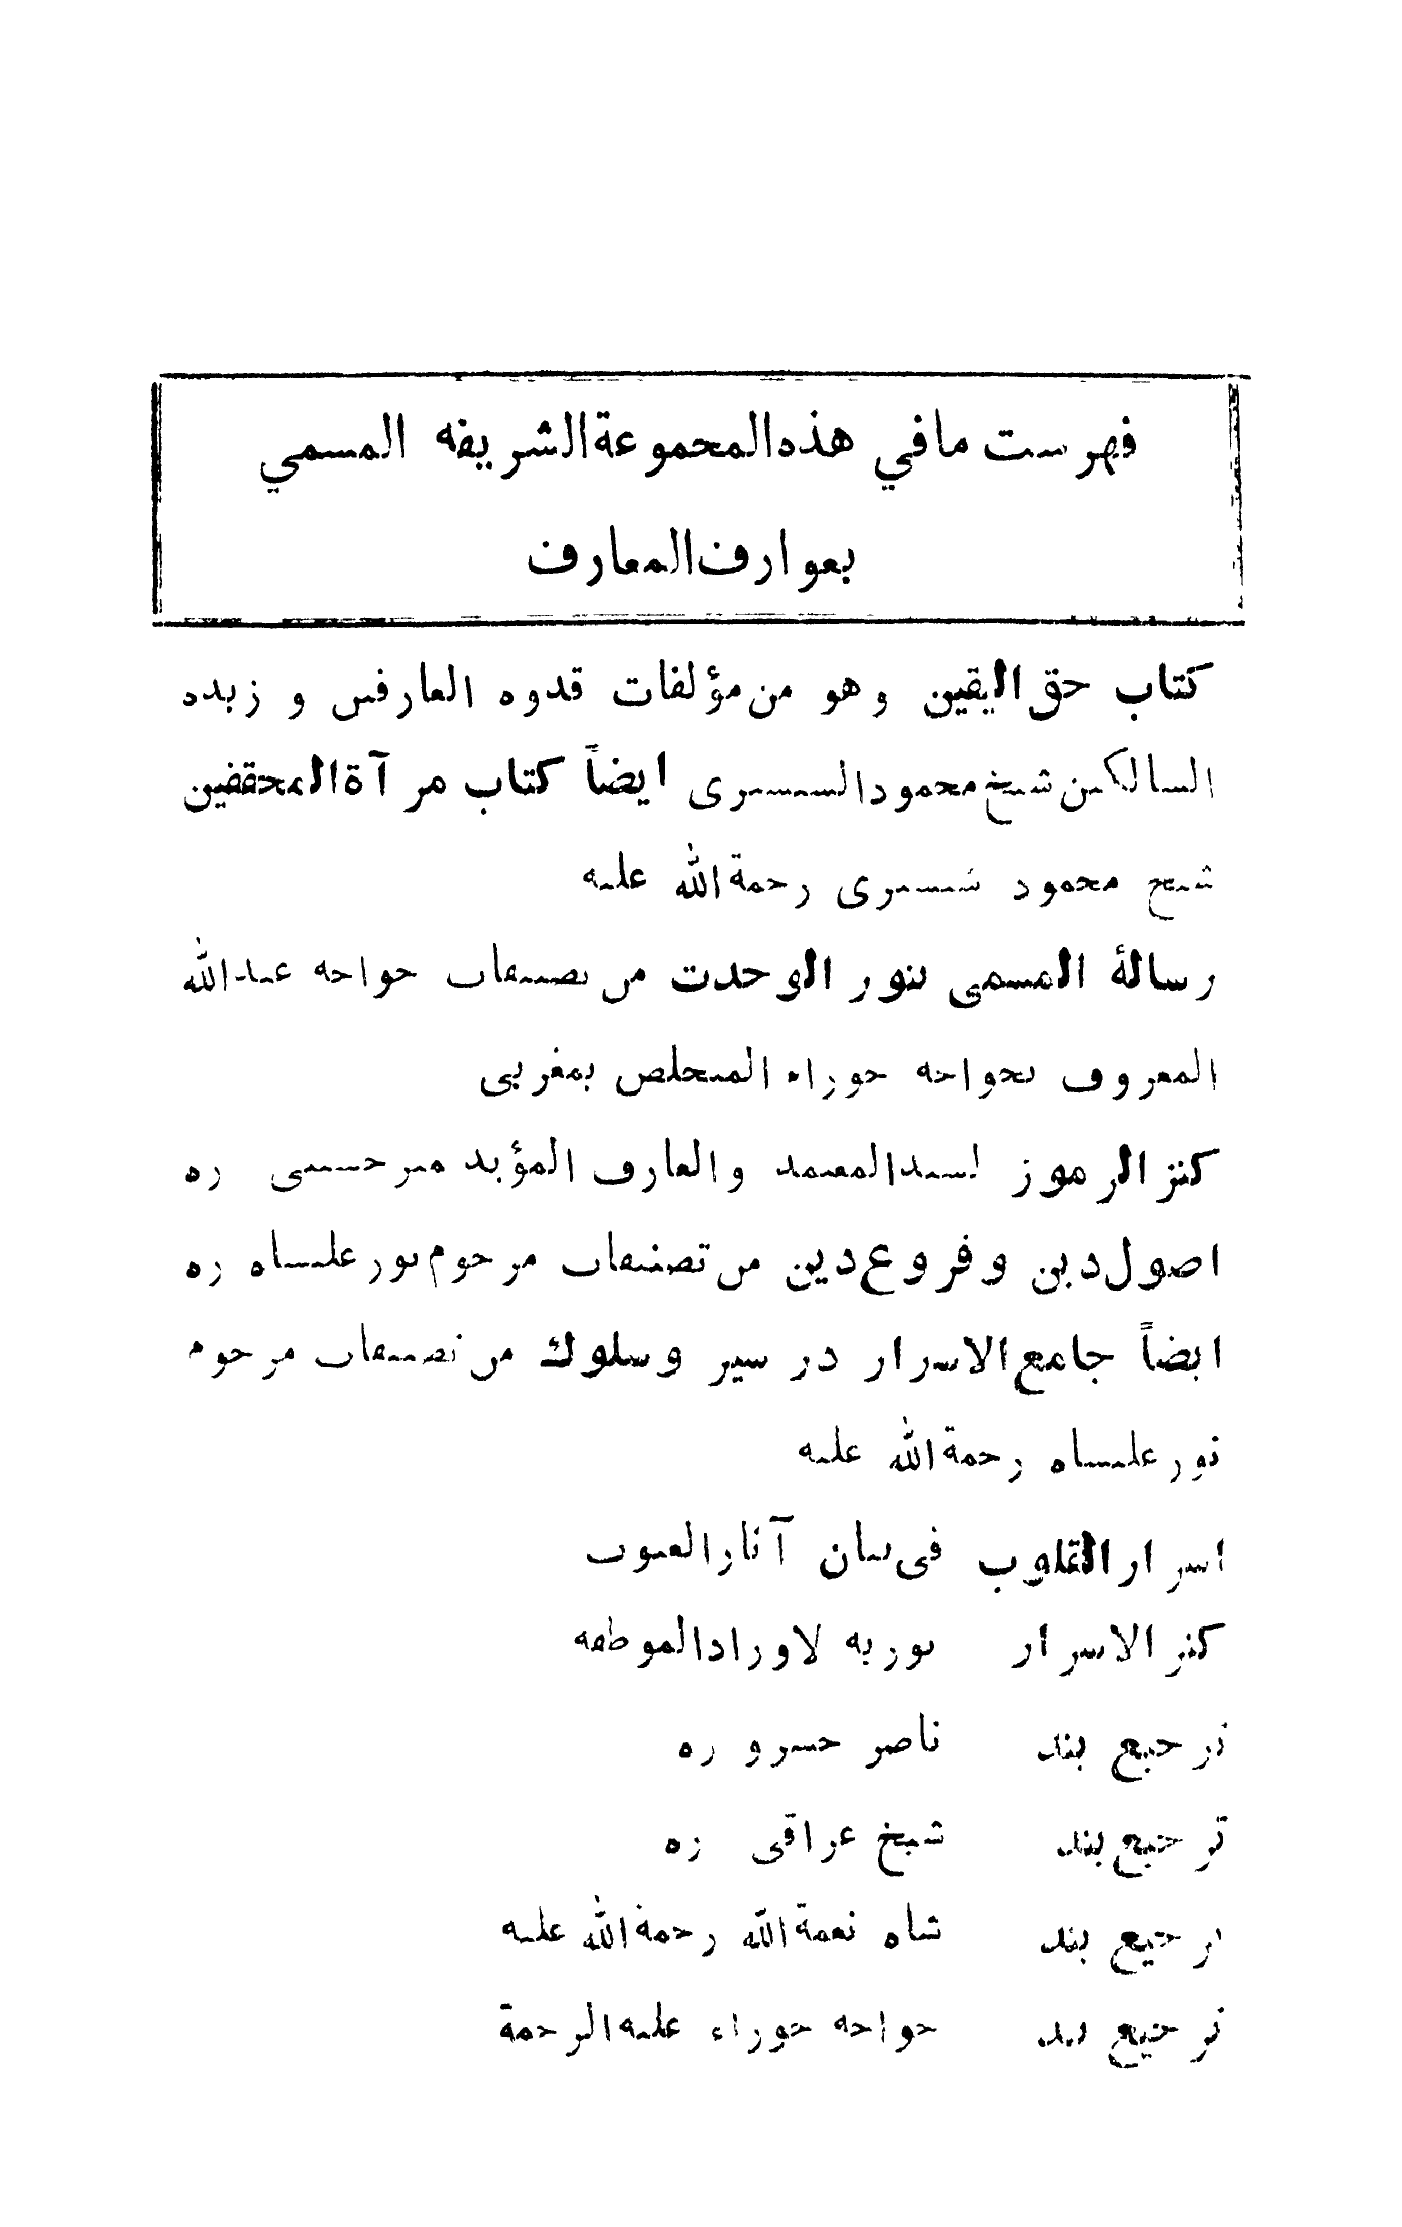 فهرست مافي هذه المجموعة الشريفه المسمي
بعوارف المعارف
كتاب حق اليقين وهو من مؤلفات قدوه العارفين و زبده
السالكين شيخ محمود الشبسترى ايضاً كتاب مرآة المحققين
شيخ محمود شبسترى رحمة الله عليه
رسالۀ المسمى بنور الوحدت من تصنيفات خواجه عبدالله
المعروف بخواجه حوراء المتخلص بمغربى
كنز الرموز لسيد المعتمد والعارف المؤيد ميرحسينى ره
اصول دين وفروع دين من تصنيفات مرحوم نورعليشاه ره
ايضاً جامع الاسرار در سير وسلوك من تصنيفات مرحوم
نورعليشاه رحمة الله عليه
اسرار القلوب فى بيان آثار الغيوب
كنز الاسرار نوريه لاوراد الموظفه
ترجيع بند ناصر خسرو ره
ترجيع بند شيخ عراقى ره
ترجيع بند شاه نعمة الله رحمة الله عليه
ترجيع بند خواجه حوراء عليه الرحمة